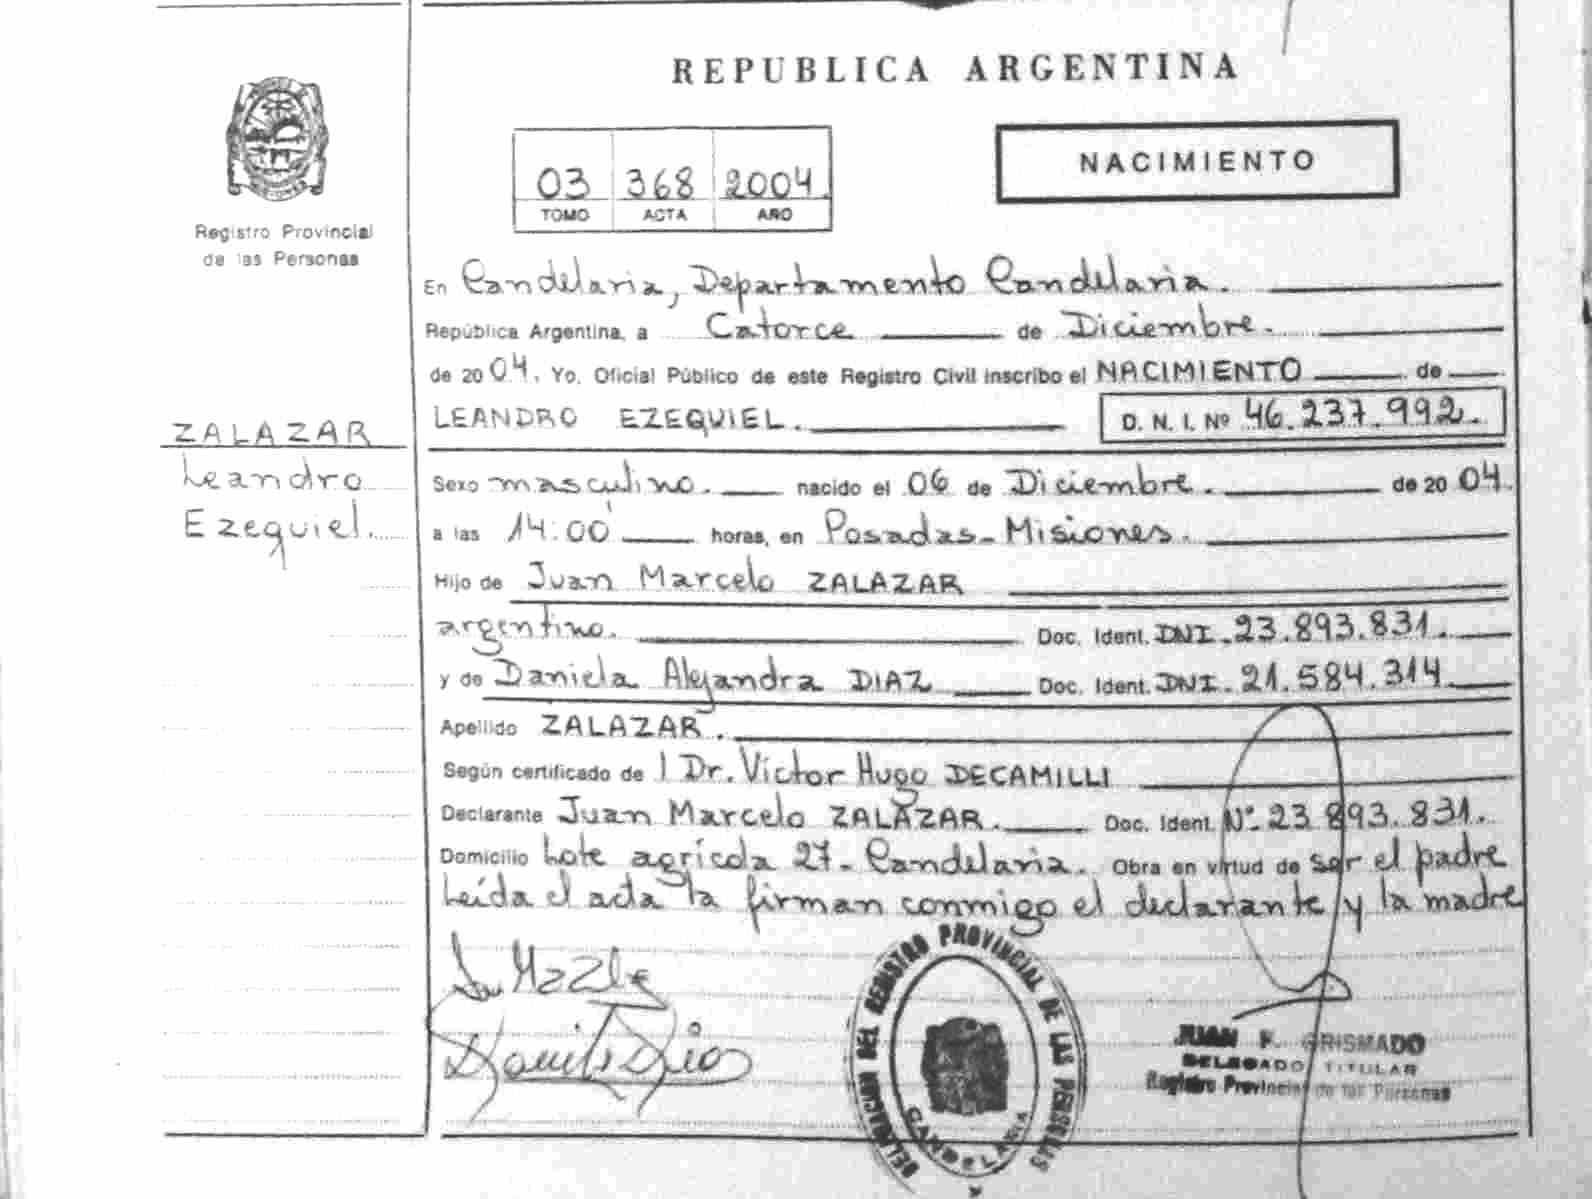 REPUBLICA ARGENTINA
NACIMIENTO
03 368 2004
TOMO ACTA AÑO
Registro Provincial
de las Personas
ZALAZAR
Leandro
Ezequiel.
En Candelaria, Departamento Candelaria.
República Argentina, a Catorce de Diciembre.
de 2004. Yo, Oficial Público de este Registro Civil inscribo el NACIMIENTO de
LEANDRO EZEQUIEL. D. N. I. Nº 46.237.992.
Sexo masculino. nacido el 06 de Diciembre. de 2004.
a las 14:00 horas, en Posadas-Misiones.
Hijo de Juan Marcelo ZALAZAR
argentino. Doc. Ident. DNI. 23.893.831.
y de Daniela Alejandra DIAZ Doc. Ident. DNI. 21.584.314
Apellido ZALAZAR.
Según certificado de l Dr. Victor Hugo DECAMILLI
Declarante Juan Marcelo ZALAZAR. Doc. Ident. Nº 23.893.831.
Domicilio Lote agrícola 27- Candelaria. Obra en virtud de ser el padre
Leída el acta la firman conmigo el declarante y la madre
DELEGACION DEL REGISTRO PROVINCIAL DE LAS PERSONAS
CANDELARIA
JUAN F. GRISMADO
DELEGADO TITULAR
Registro Provincial de las Personas